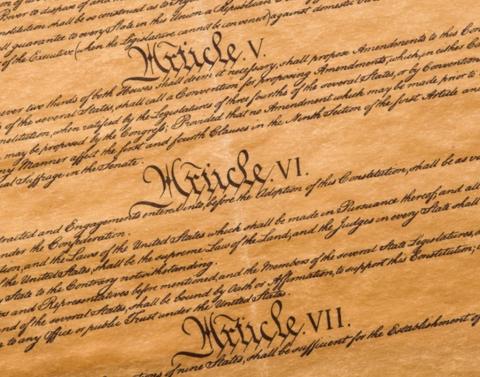 Power to dispose of and
Constitution shall be so construed as to Prejudice
shall guarantee to every State in this Union a Republican
of the Executive (when the Legislature cannot be convened) against domestic
Article. V.
ever two thirds of both Houses shall deem it necessary, shall propose Amendments to this Con
of the several States, shall call a Convention for proposing Amendments, which, in either Ca
nstitution, when ratified by the Legislatures of three fourths of the several States, or by Convention
may be proposed by the Congress; Provided that no Amendment which may be made prior to
ny Manner affect the first and fourth Clauses in the Ninth Section of the first Article; and
al Suffrage in the Senate.
Article. VI.
ntracted and Engagements entered into, before the Adoption of this Constitution, shall be as va
under the Confederation.
ution, and the Laws of the United States which shall be made in Pursuance thereof; and all
f the United States, shall be the supreme Law of the Land; and the Judges in every State shall
y State to the Contrary notwithstanding.
rs and Representatives before mentioned, and the Members of the several State Legislatures,
nd of the several States, shall be bound by Oath or Affirmation, to support this Constitution;
n to any Office or public Trust under the United States.
Article. VII.
of nine States, shall be sufficient for the Establishment of